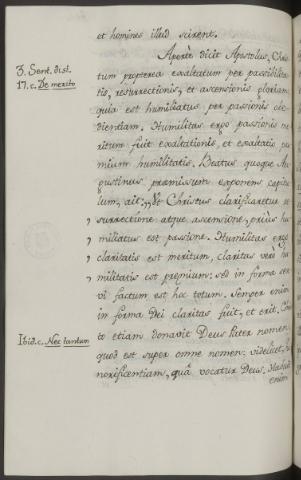 et homines illud scirent.
Aperte dicit Apostolus, Chris-
3. Sent. dist.
17. c. De merito
tum propterea exaltatum per passibilita-
tis, resurrectionis, et ascensionis gloriam
quia est humiliatus per passionis obe-
dientiam. Humilitas ergo passionis me-
ritum fuit exaltationis, et exaltatio præ-
mium humilitatis. Beatus quoque Au-
gustinus præmissum exponens capitu-
lum, ait: „Ut Christus clarificaretur re-
surrectione atque ascensione, priùs hu-
„ miliatus est passione. Humilitas ergo
„ claritatis est meritum, claritas vero hu-
„ militatis est premium: sed in forma ser-
vi factum est hoc totum. Semper enim
in forma Dei claritas fuit, et erit.
Ibid. c. Nec tantum
to etiam donavit Deus Pater nomen,
quod est super omne nomen: videlicet, ho-
norificentiam, quâ vocatur Deus.
enim